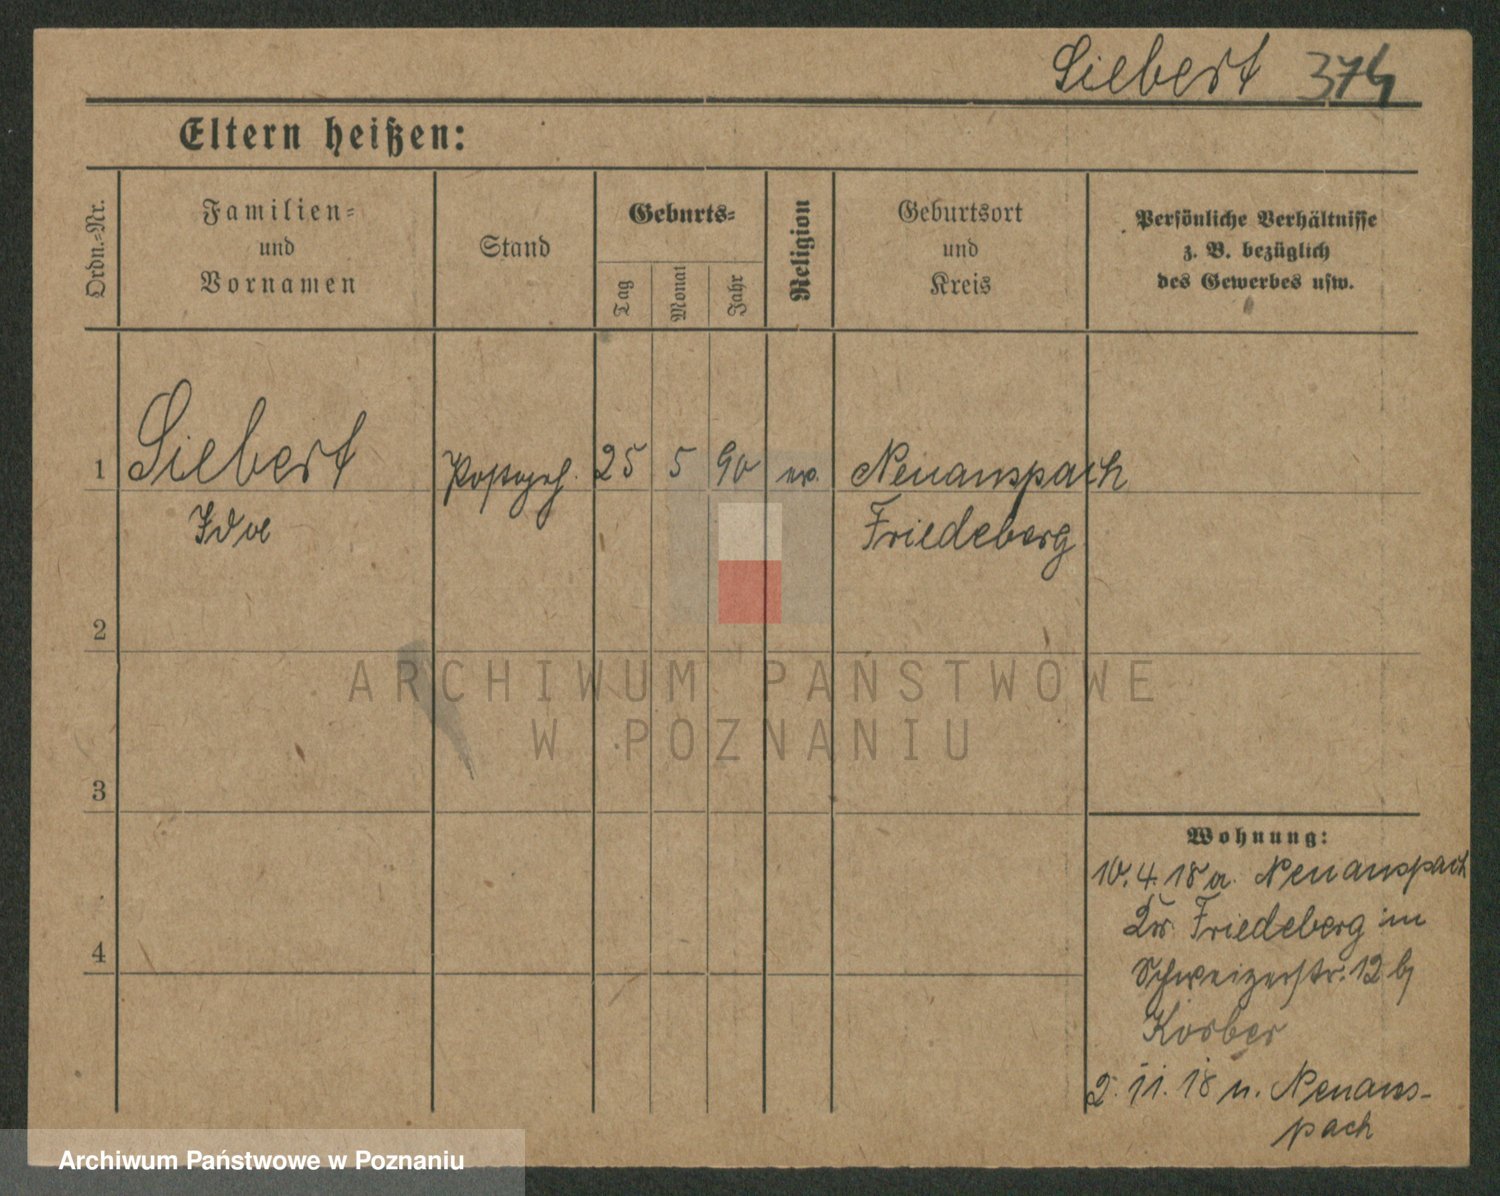 Siebert 374
Eltern heißen:
Ordn.-Nr.
Familien-
und
Vornamen
Stand
Geburts-
Tag
Monat
Jahr
Religion
Geburtsort
und
Kreis
Persönliche Verhältnisse
z. B. bezüglich
des Gewerbes usw.
1 Siebert Postgeh. 25 5 90 ev. Neuanspach
Ida Friedeberg
2
3
4
Wohnung:
10.4.18 a. Neuanspach
Friedeberg in
Schweizerstr. 12 b/
Korber
2.11.18 n. Neuans-
pach
ARCHIWUM PAŃSTWOWE
W POZNANIU
Archiwum Państwowe w Poznaniu